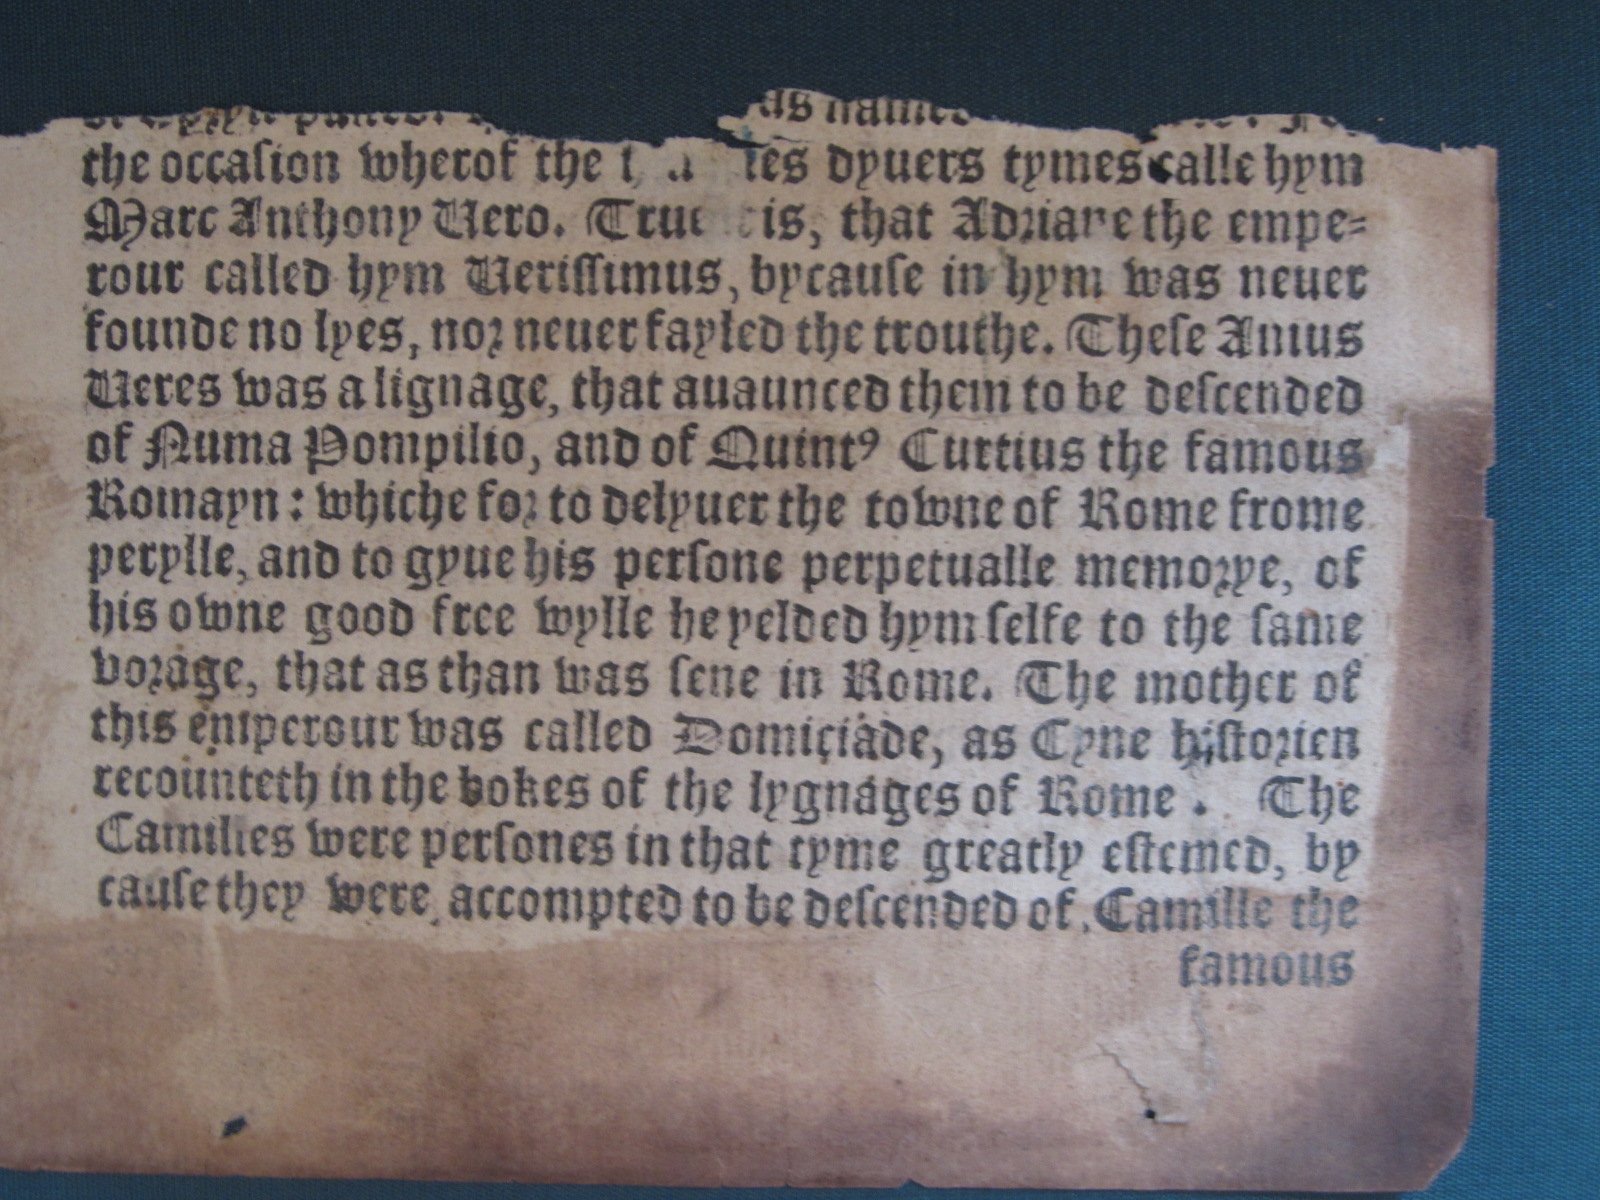 as named
the occasion wherof the dyuers tymes calle hym
Marc Anthony Uero. True is, that Adriane the empe=
rour called hym Uerissimus, bycause in hym was neuer
founde no lyes, nor neuer fayled the trouthe. These Anius
Ueres was a lignage, that auaunced them to be descended
of Numa Pompilio, and of Quintꝰ Curtius the famous
Romayn: whiche for to delyuer the towne of Rome frome
perylle, and to gyue his persone perpetualle memorye, of
his owne good free wylle he yelded hym selfe to the same
vorage, that as than was sene in Rome. The mother of
this emperour was called Domiciade, as Cyne historien
recounteth in the bokes of the lygnages of Rome. The
Camilles were persones in that tyme greatly estemed, by
cause they were accompted to be descended of Camille the
famous